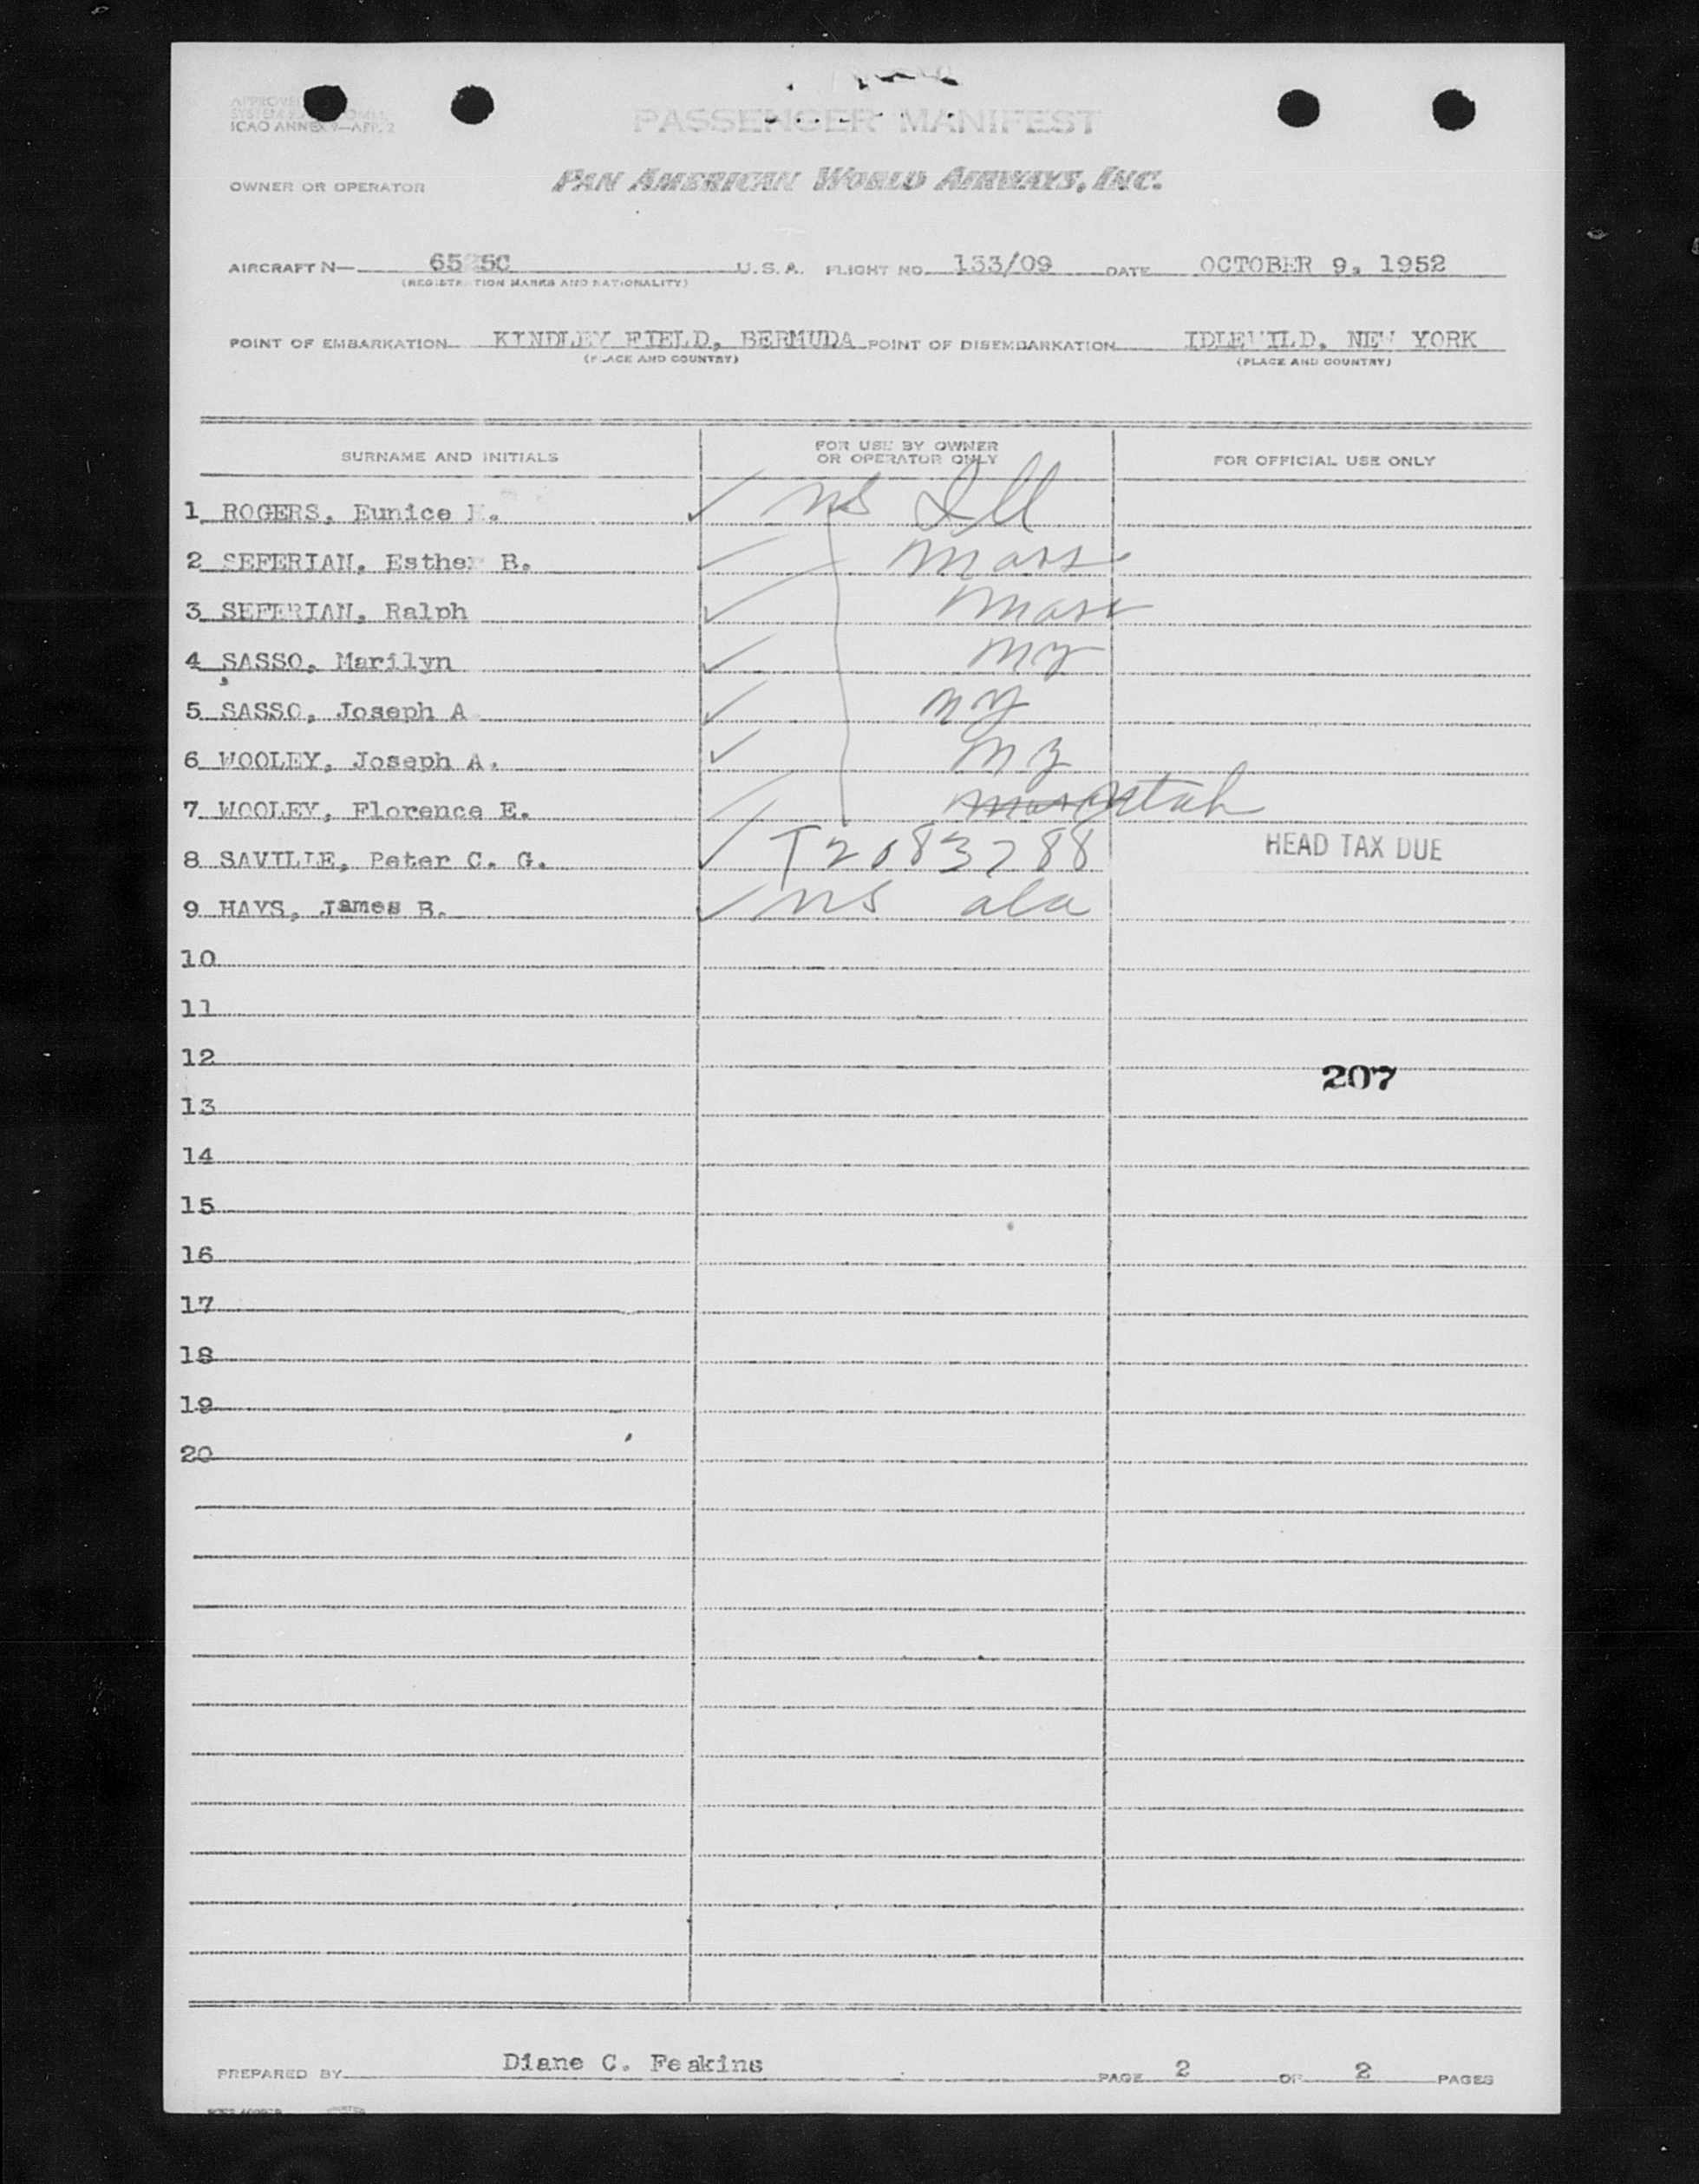 ICAO ANNEX 9—APP. 2
PASSENGER MANIFEST
OWNER OR OPERATOR PAN AMERICAN WORLD AIRWAYS, INC.
AIRCRAFT N— U.S.A. FLIGHT NO. 133/09 DATE OCTOBER 9, 1952
(REGISTRATION MARKS AND NATIONALITY)
POINT OF EMBARKATION KINDLEY FIELD, BERMUDA POINT OF DISEMBARKATION IDLEWILD, NEW YORK
(PLACE AND COUNTRY) (PLACE AND COUNTRY)
SURNAME AND INITIALS FOR USE BY OWNER OR OPERATOR ONLY FOR OFFICIAL USE ONLY
1 ROGERS, Eunice ✓ ns Ill
2 SEFERIAN, Esther B. ✓ Mass
3 SEFERIAN, Ralph ✓ Mass
4 SASSO, Marilyn ✓ ny
5 SASSO, Joseph A ✓ ny
6 WOOLEY, Joseph A. ✓ ny
7 WOOLEY, Florence E. ✓ Utah
8 SAVILLE, Peter C. G. ✓ T2083288 HEAD TAX DUE
9 HAYS, James B. ✓ ns ala
10
11
12
207
13
14
15
16
17
18
19
20
PREPARED BY Diane C. Feakins PAGE 2 OF 2 PAGES